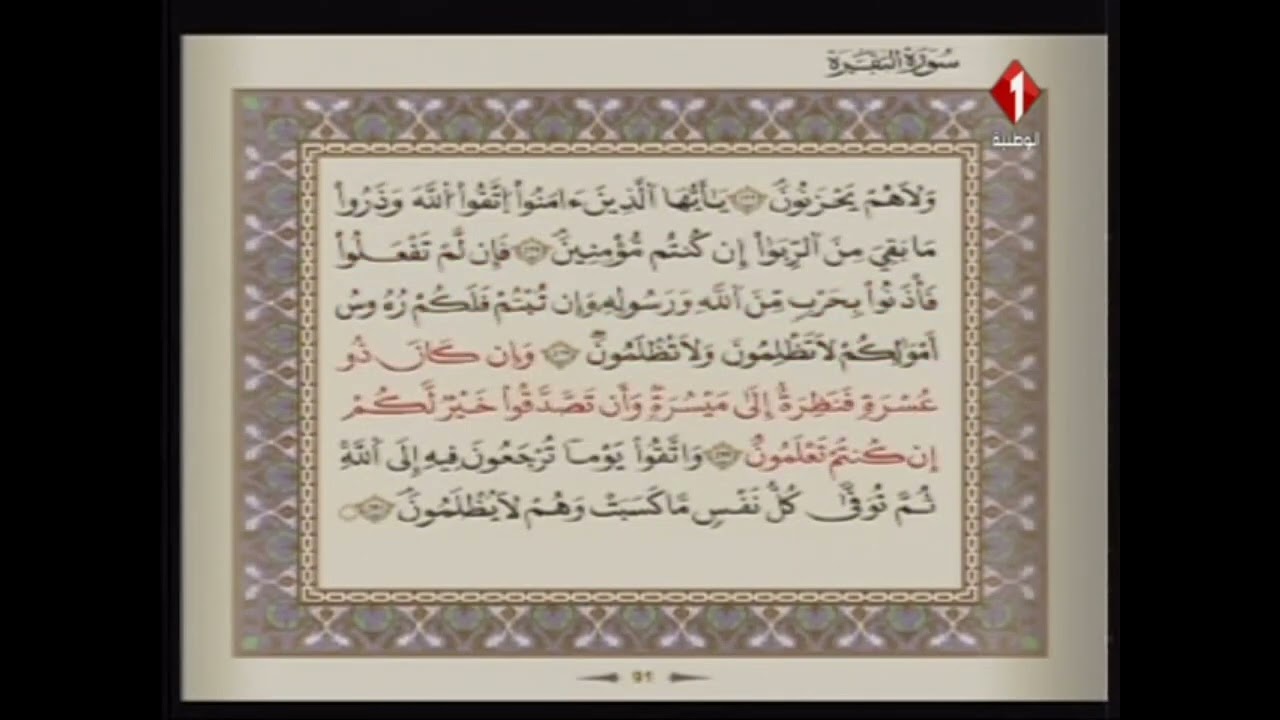 سُورَةُ البَقَرَة
1
الوطنية
وَلَا هُمْ يَحْزَنُونَ يَٰأَيُّهَا اَ۬لَّذِينَ ءَامَنُواْ اُ۪تَّقُواْ اُ۬للَّهَ وَذَرُواْ
مَا بَقِيَ مِنَ اَ۬لرِّبَوٰاْ إِن كُنتُم مُّؤْمِنِينَ فَإِن لَّمْ تَفْعَلُواْ
فَأْذَنُواْ بِحَرْبٍ مِّنَ اَ۬للَّهِ وَرَسُولِهِ وَإِن تُبْتُمْ فَلَكُمْ رُءُوسُ
أَمْوَٰلِكُمْ لَا تَظْلِمُونَ وَلَا تُظْلَمُونَ وَإِن كَانَ ذُو
عُسْرَةٍ فَنَظِرَةٌ إِلَىٰ مَيْسُرَةٍ وَأَن تَصَّدَّقُواْ خَيْرٌ لَّكُمْ
إِن كُنتُمْ تَعْلَمُونَ وَاتَّقُواْ يَوْماً تُرْجَعُونَ فِيهِ إِلَى اَ۬للَّهِ
ثُمَّ تُوَفَّىٰ كُلُّ نَفْسٍ مَّا كَسَبَتْ وَهُمْ لَا يُظْلَمُونَ